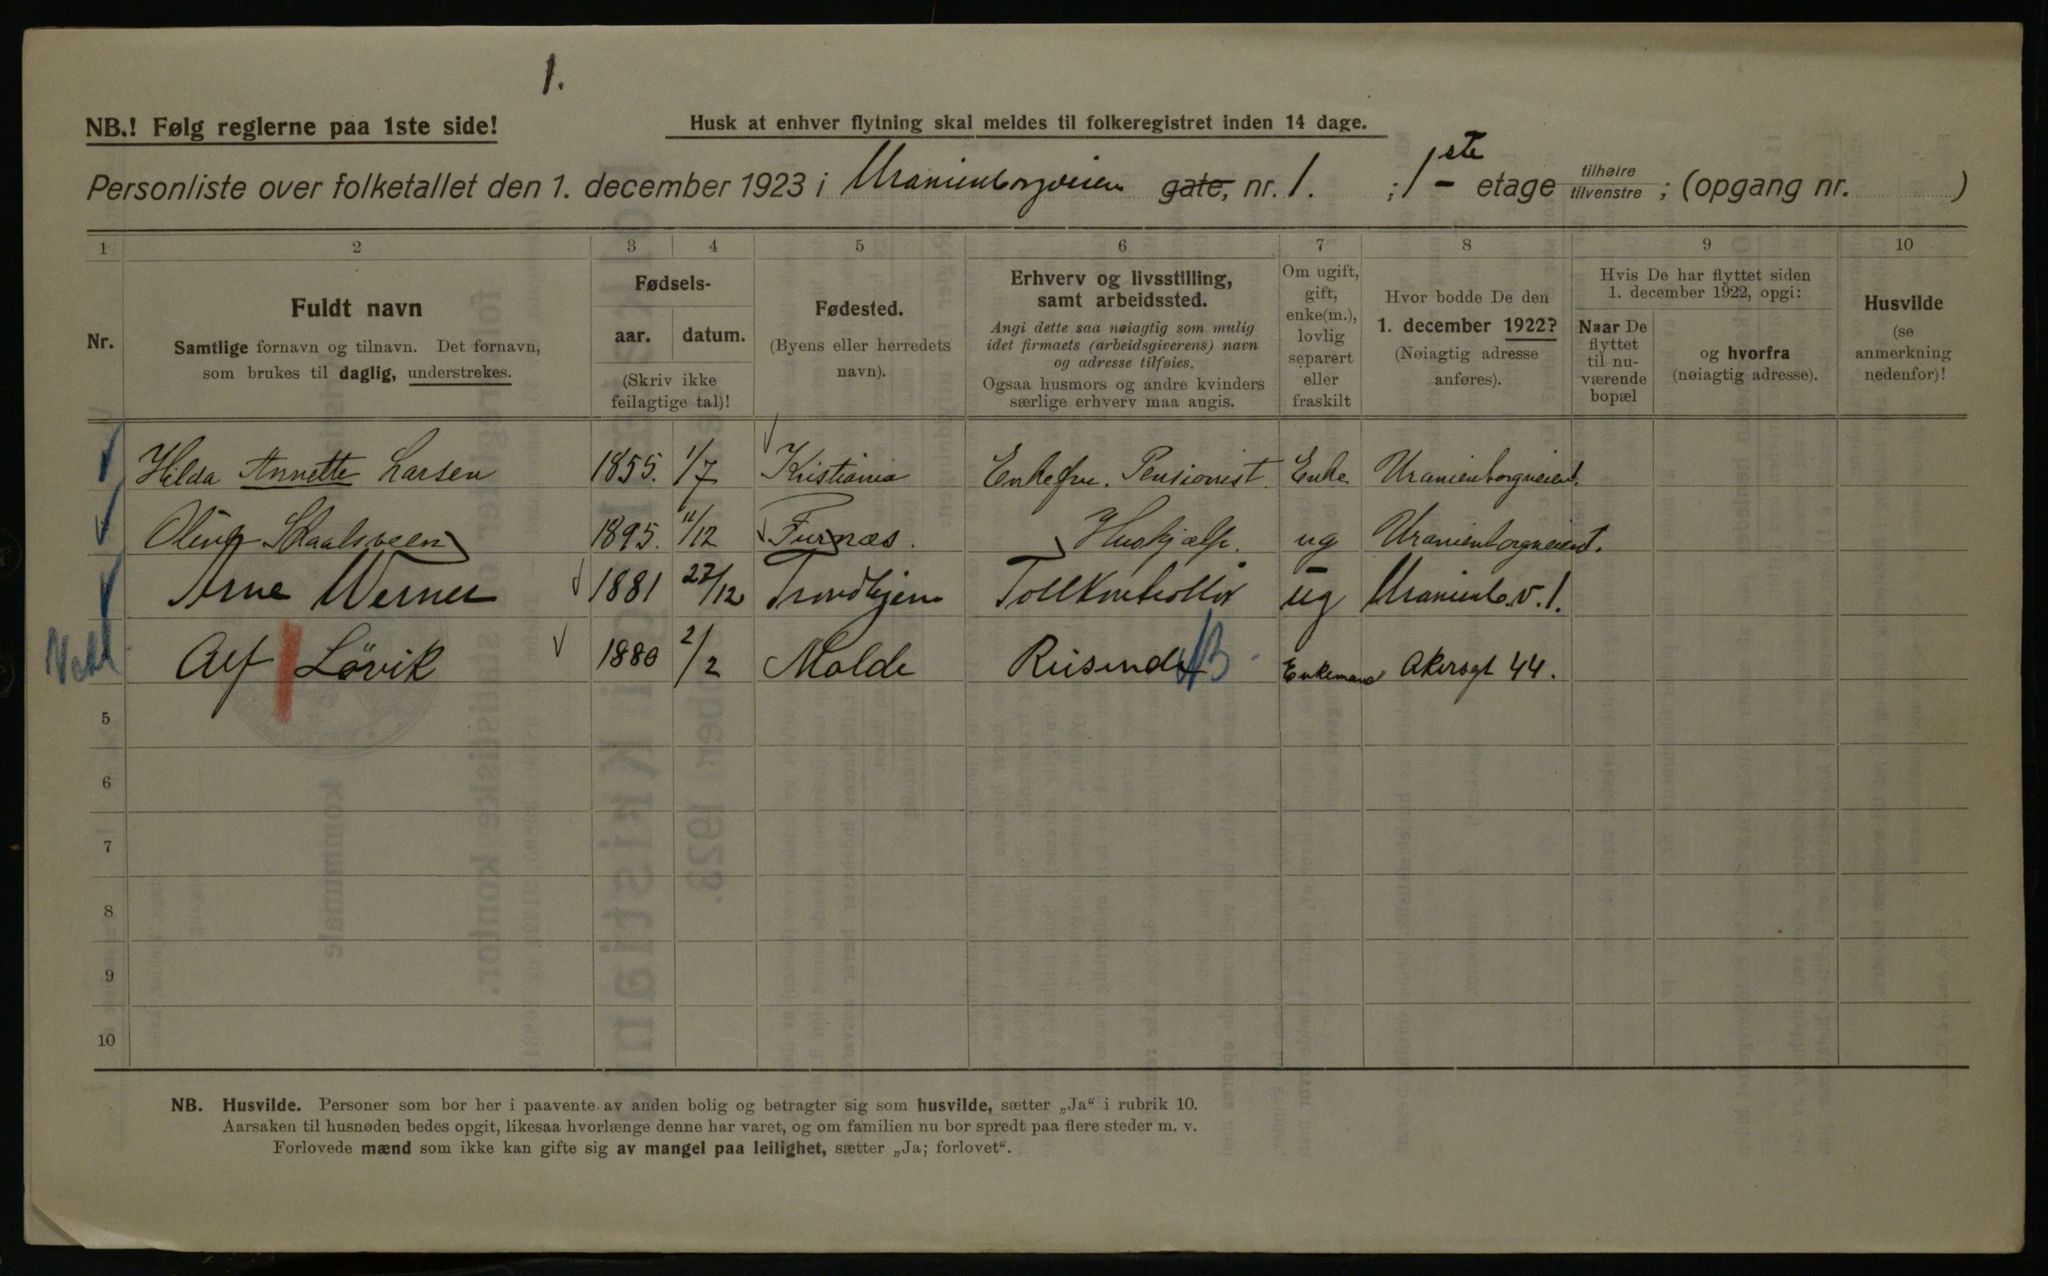 1.
NB.! Følg reglerne paa 1ste side!
Husk at enhver flytning skal meldes til folkeregistret inden 14 dage.
Personliste over folketallet den 1. december 1923 i Uranienborgveien gate, nr. 1. ; 1ste etage tilhøire tilvenstre ; (opgang nr. )
1 2 3 4 5 6 7 8 9 10
Nr.
Fuldt navn
Samtlige fornavn og tilnavn. Det fornavn,
som brukes til daglig, understrekes.
Fødsels-
aar. datum.
(Skriv ikke
feilagtige tal)!
Fødested.
(Byens eller herredets
navn).
Erhverv og livsstilling,
samt arbeidssted.
Angi dette saa nøiagtig som mulig
idet firmaets (arbeidsgiverens) navn
og adresse tilføies.
Ogsaa husmors og andre kvinders
særlige erhverv maa angis.
Om ugift,
gift,
enke(m.),
lovlig
separert
eller
fraskilt
Hvor bodde De den
1. december 1922?
(Nøiagtig adresse
anføres).
Hvis De har flyttet siden
1. december 1922, opgi:
Naar De
flyttet
til nu-
værende
bopæl
og hvorfra
(nøiagtig adresse).
Husvilde
(se
anmerkning
nedenfor)!
Hilda Annette Larsen 1855. 1/7 Kristiania Enkefru. Pensionist. Enke Uranienborgveien 1.
Skaalsveen 1895. 11/12 Furnæs. Hushjælp. ug Uranienborgveien 1.
Arne Werner 1881 22/12 Trondhjem Tollkontrollør ug Uranienb.v. 1.
Alf Lövik 1880 2/2 Molde Reisende Enkemand Akersgt 44.
5
6
7
8
9
10
NB. Husvilde. Personer som bor her i paavente av anden bolig og betragter sig som husvilde, sætter „Ja“ i rubrik 10.
Aarsaken til husnøden bedes opgit, likesaa hvorlænge denne har varet, og om familien nu bor spredt paa flere steder m. v.
Forlovede mænd som ikke kan gifte sig av mangel paa leilighet, sætter „Ja; forlovet“.